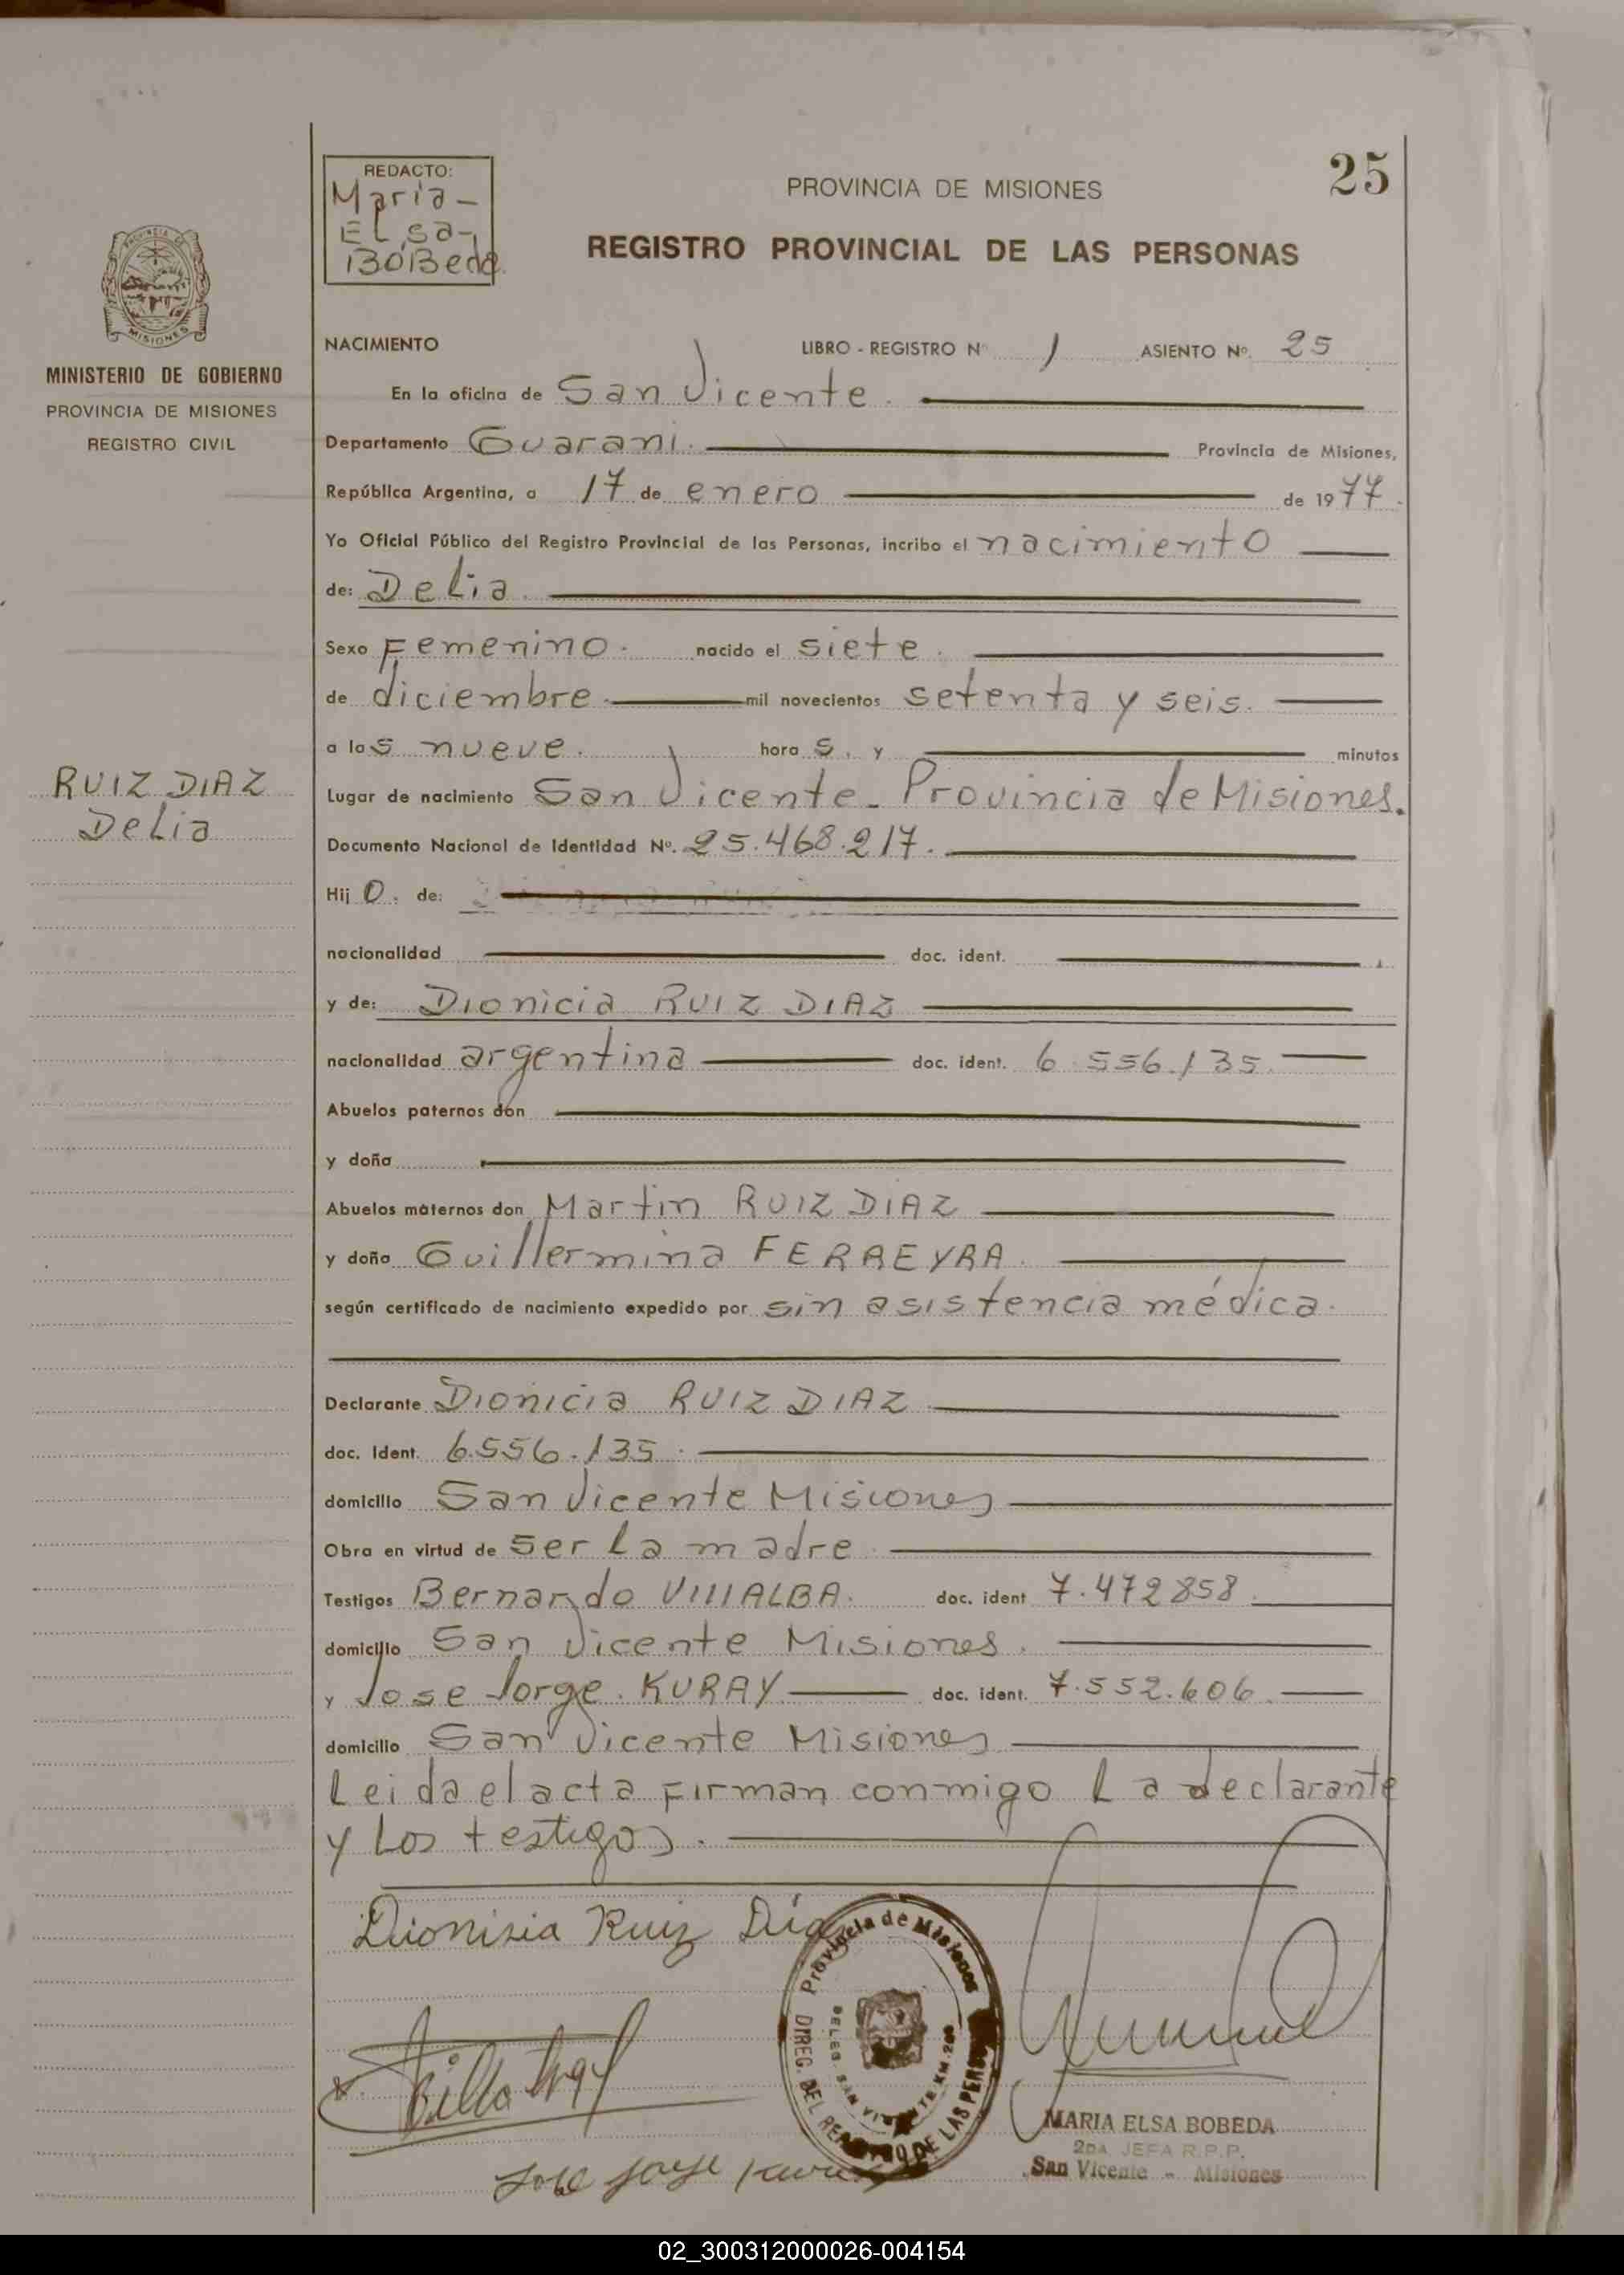 REDACTO:
Maria-
Elsa-
BOBeda.
PROVINCIA DE MISIONES
25
REGISTRO PROVINCIAL DE LAS PERSONAS
PROVINCIA DE
MISIONES
MINISTERIO DE GOBIERNO
PROVINCIA DE MISIONES
REGISTRO CIVIL
RUIZ DIAZ
Delia
NACIMIENTO LIBRO - REGISTRO Nº 1 ASIENTO Nº. 25
En la oficina de San Vicente.
Departamento Guarani. Provincia de Misiones,
República Argentina, a 17 de enero de 1977.
Yo Oficial Público del Registro Provincial de las Personas, incribo el nacimiento
de: Delia.
Sexo Femenino. nacido el siete.
de diciembre. mil novecientos setenta y seis.
a las nueve. horas. y minutos
Lugar de nacimiento San Vicente- Provincia de Misiones.
Documento Nacional de Identidad Nº. 25.468.217.
Hijo. de:
nacionalidad doc. ident.
y de: Dionicia RUIZ DIAZ
nacionalidad argentina doc. ident. 6.556.135.
Abuelos paternos don
y doña
Abuelos maternos don Martin RUIZ DIAZ
y doña Guillermina FERREYRA.
según certificado de nacimiento expedido por sin asistencia médica.
Declarante Dionicia RUIZ DIAZ
doc. Ident. 6.556.135.
domicilio San Vicente Misiones
Obra en virtud de ser la madre.
Testigos Bernardo VIllALBA. doc. ident 7.472858.
domicilio San Vicente Misiones.
y Jose Jorge. KURAY doc. ident. 7.552.606.
domicilio San Vicente Misiones
Leida el acta firman conmigo la declarante
y los testigos.
Dionisia Ruiz Díaz
Provincia de Misiones
DIREG. DEL REGISTRO DE LAS PERS
DELEG. SAN VICENTE KM.
Jose Jorge Kuray
MARIA ELSA BOBEDA
2DA. JEFA R.P.P.
San Vicente - Misiones
02_300312000026-004154